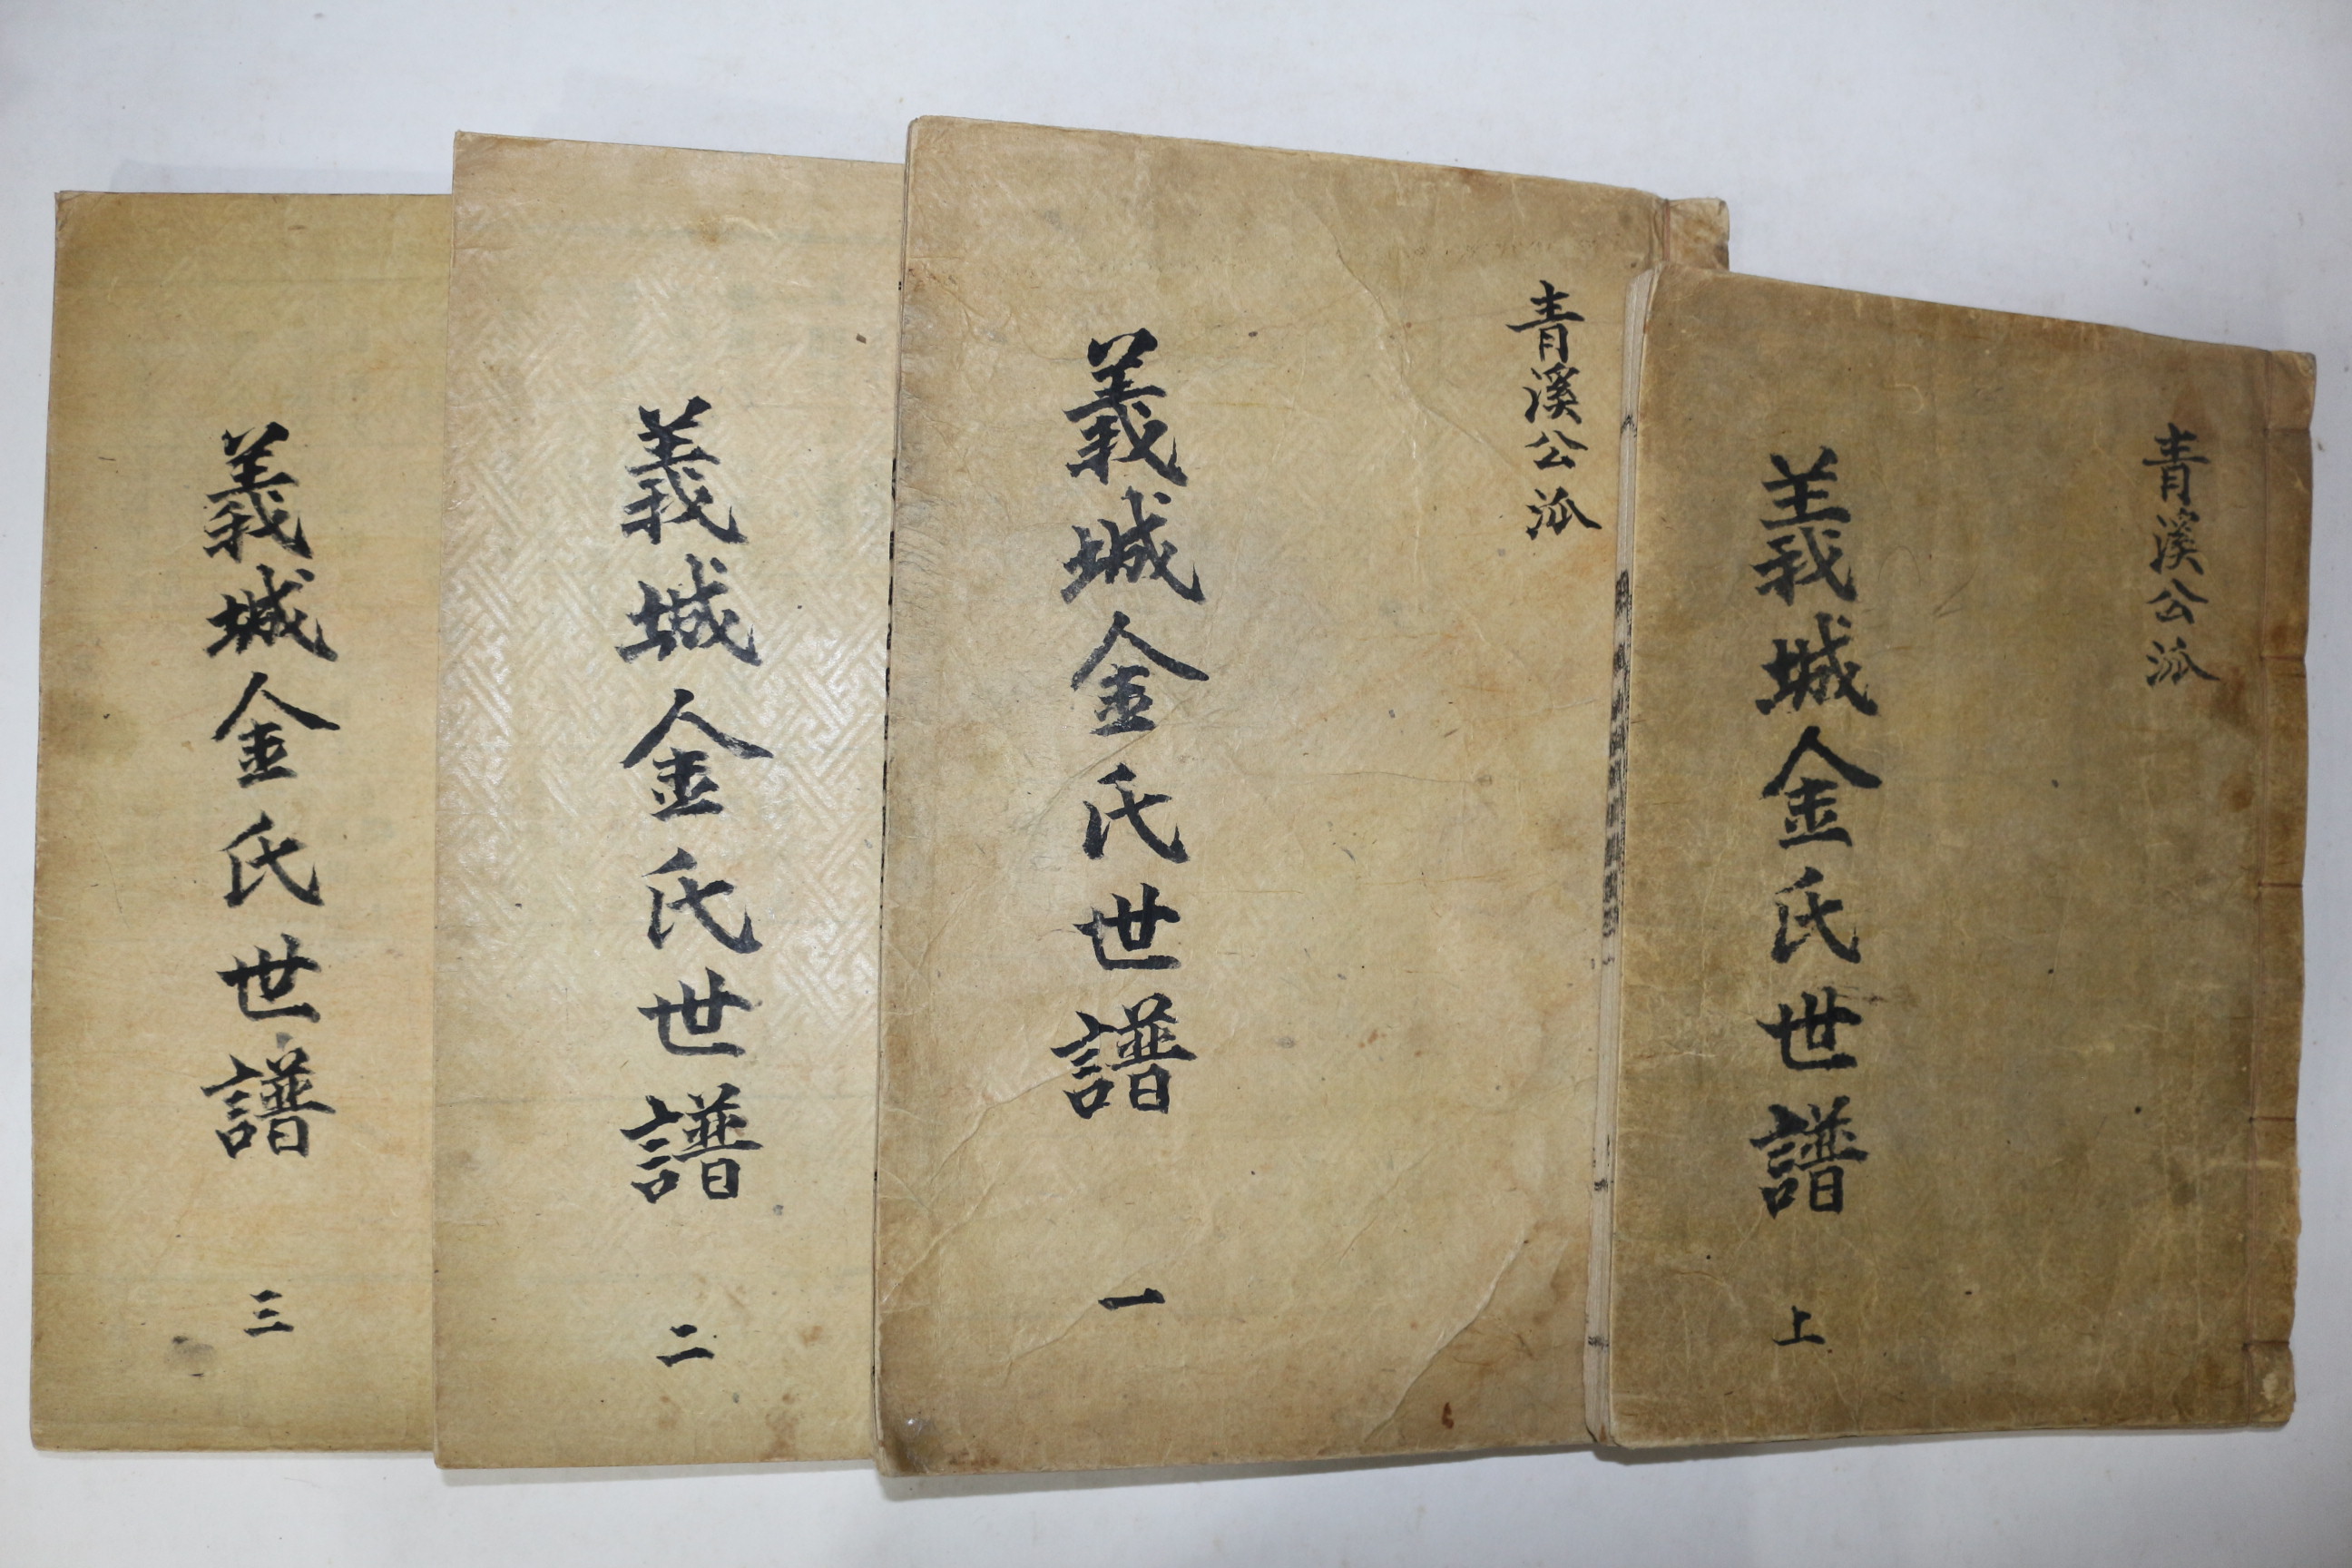 青溪公派
義城金氏世譜 上
青溪公派
義城金氏世譜 一
義城金氏世譜 二
義城金氏世譜 三